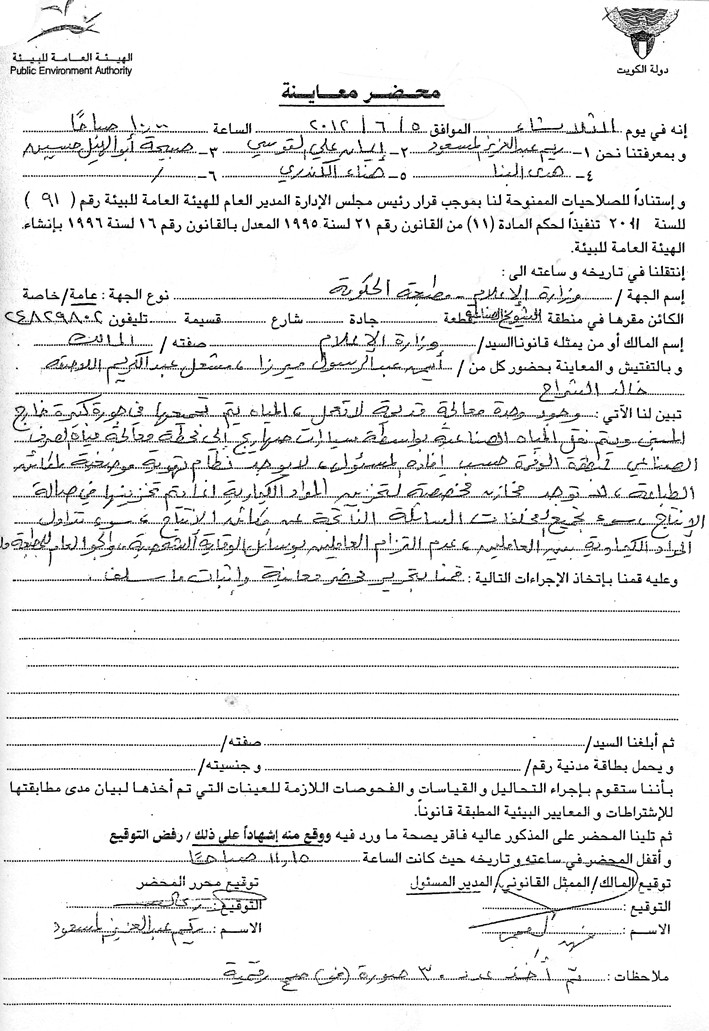 الهيئة العامة للبيئة
Public Environment Authority
دولة الكويت
محضر معاينة
إنه في يوم الثلاثاء الموافق ٥ / ٦ / ٢٠١٢ الساعة ١٠:٠٠ صباحًا
و بمعرفتنا نحن ١- ريم عبدالعزيز المسعود ٢- إيمان علي القوسي ٣- صبيحة أبوالهيل حسين
٤- هدى البنا ٥- هناء الكندري ٦- /
و إستناداً للصلاحيات الممنوحة لنا بموجب قرار رئيس مجلس الإدارة المدير العام للهيئة العامة للبيئة رقم ( ٩١ )
للسنة ٢٠١١ تنفيذاً لحكم المادة (١١) من القانون رقم ٢١ لسنة ١٩٩٥ المعدل بالقانون رقم ١٦ لسنة ١٩٩٦ بإنشاء
الهيئة العامة للبيئة.
إنتقلنا في تاريخه و ساعته الى :
إسم الجهة / وزارة الإعلام - مطبعة الحكومة نوع الجهة : عامة/خاصة
الكائن مقرها في منطقة الشويخ الصناعية قطعة جادة شارع قسيمة تليفون ٢٤٨٢٩٨٠٢
إسم المالك أو من يمثله قانونا السيد/ وزارة الإعلام صفته / المالك
و بالتفتيش و المعاينة بحضور كل من / أيمن عبدالرسول ميرزا ، مشعل عبدالكريم
خالد السراج
تبين لنا الآتي : وجود وحدة معالجة قديمة لا تعمل ، المياه يتم تجميعها في جورة كبيرة خارج
المبنى ويتم نقل المياه الصناعية بواسطة سيارات صهاريج إلى محطة معالجة مياه الصرف
الصناعي بمنطقة الوفرة حسب إفادة المسئول ، لا يوجد نظام تهوية موضعية لمكائن
الطباعة ، لا توجد مخازن مخصصة لتخزين المواد الكيماوية إذا يتم تخزينها في صالة
الإنتاج ، سوء تجميع لمخلفات السائلة الناتجة عن مكائن الإنتاج ، سوء تداول
المواد الكيماوية بين العاملين ، عدم التزام العاملين بوسائل الوقاية الشخصية ، والجو العام للمطبعة
وعليه قمنا بإتخاذ الإجراءات التالية : قمنا بتحرير محضر معاينة وإثبات ما سلف
ثم أبلغنا السيد/ صفته/
و يحمل بطاقة مدنية رقم/ و جنسيته/
بأننا ستقوم بإجراء التحاليل و القياسات و الفحوصات اللازمة للعينات التي تم أخذها لبيان مدى مطابقتها
للإشتراطات و المعايير البيئية المطبقة قانوناً.
ثم تلينا المحضر على المذكور عاليه فاقر بصحة ما ورد فيه ووقع منه إشهاداً على ذلك / رفض التوقيع
و أقفل المحضر في ساعته و تاريخه حيث كانت الساعة ١١,١٥ صباحًا
توقيع المالك/ الممثل القانوني/ المدير المسئول توقيع محرر المحضر
التوقيع : التوقيع :
الاسم : الاسم : ريم عبدالعزيز المسعود
ملاحظات : تم أخذ عدد ٣٠ صورة رقمية